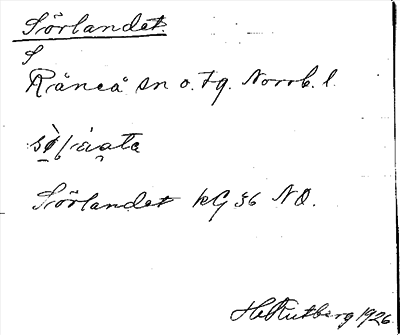 Sörlandet.
S
Råneå sn o. tg. Norrb. l.
Sörlandet kG 36 NO.
H. Rutberg 1926.